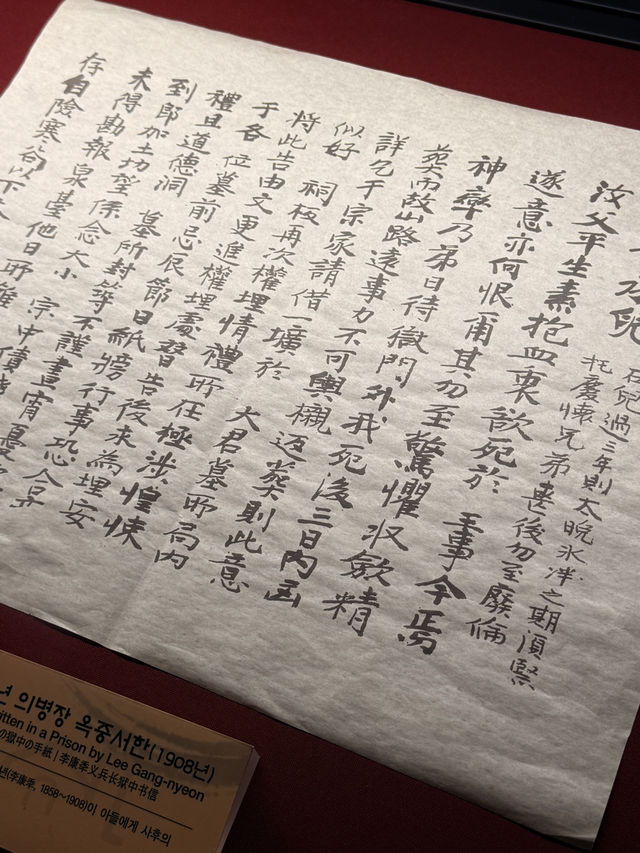 乃兒
在兒過三年則太晩氷泮之期須緊
托慶懷兄弟甚後勿至廢倫
汝父平生素抱血衷欲死於 王事今焉
遂意亦何恨爾其勿至驚懼收斂精
神率乃弟日待獄門外我死後三日內函
葬而故山路遠事力不可輿櫬返葬則此意
詳乞于宗家請借一壙於 大君墓所局內
似好 祠板再次權埋情禮所在極涉惶悚
將此告由文更進權埋處替告後未為埋安
于各位墓前忌辰節日紙牓行事恐合
禮且道德洞 墓所封等不謹晝宵憂
到郎加土切望係念大小 宗中債
未得勘報泉臺他日所難
存自險寒谷以下
년 의병장 옥중서한(1908년)
itten in a Prison by Lee Gang-nyeon
の獄中の手紙 | 李康秊义兵长狱中书信
년(李康秊, 1858~1908)이 아들에게 사후의